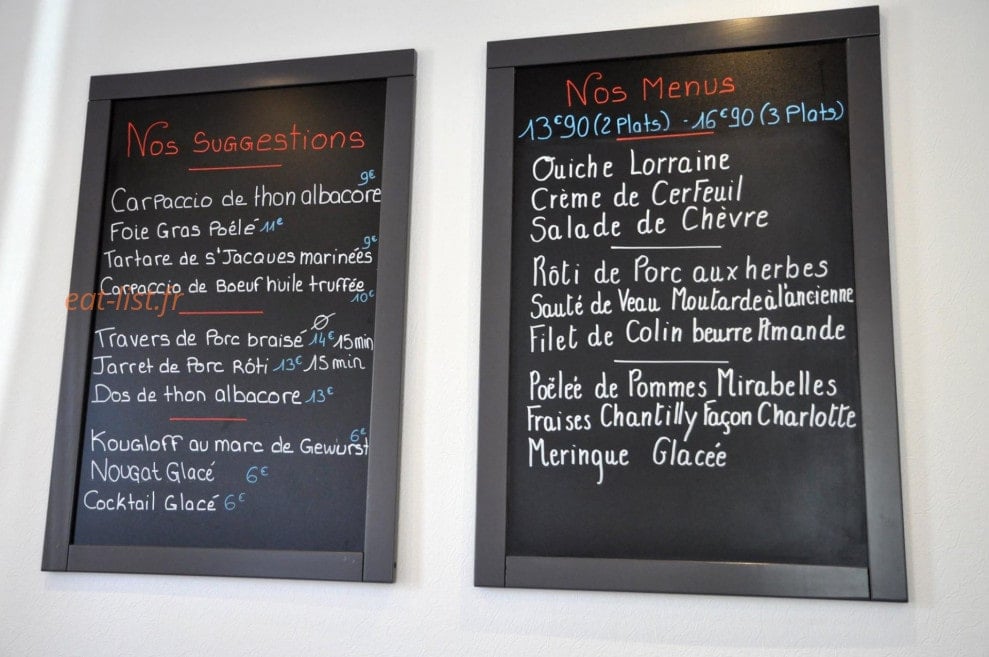 Nos Suggestions
Carpaccio de thon albacore 9€
Foie Gras Poélé 11€
Tartare de s'Jacques marineés 9€
Carpaccio de Boeuf huile truffée 10€
eat-list.fr
Travers de Porc braisé 14€ 15min
Jarret de Porc Rôti 13€ 15min
Dos de thon albacore 13€
Kougloff au marc de Gewurst 6€
Nougat Glacé 6€
Cocktail Glacé 6€
Nos Menus
13€90 (2 Plats) - 16€90 (3 Plats)
Quiche Lorraine
Crème de Cerfeuil
Salade de Chèvre
Rôti de Porc aux herbes
Sauté de Veau Moutarde à l'ancienne
Filet de Colin beurre Amande
Poëleé de Pommes Mirabelles
Fraises Chantilly Façon Charlotte
Meringue Glaceé